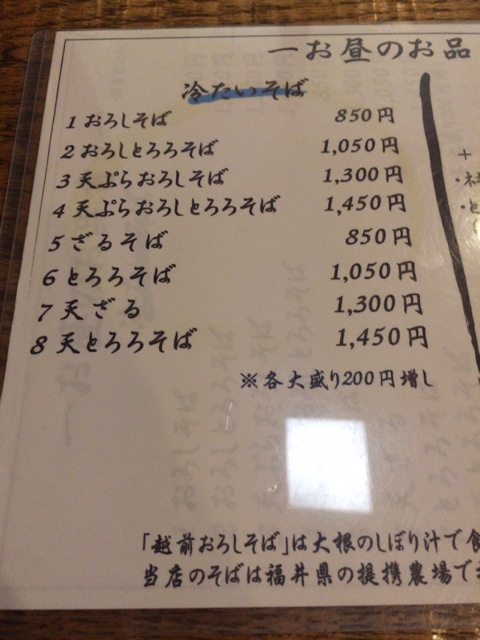 一お昼のお品
冷たいそば
1 おろしそば 850円
2 おろしとろろそば 1,050円
3 天ぷらおろしそば 1,300円
4 天ぷらおろしとろろそば 1,450円
5 ざるそば 850円
6 とろろそば 1,050円
7 天ざる 1,300円
8 天とろろそば 1,450円
※各大盛り200円増し
+
「越前おろしそば」は大根のしぼり汁で食
当店のそばは福井県の提携農場で